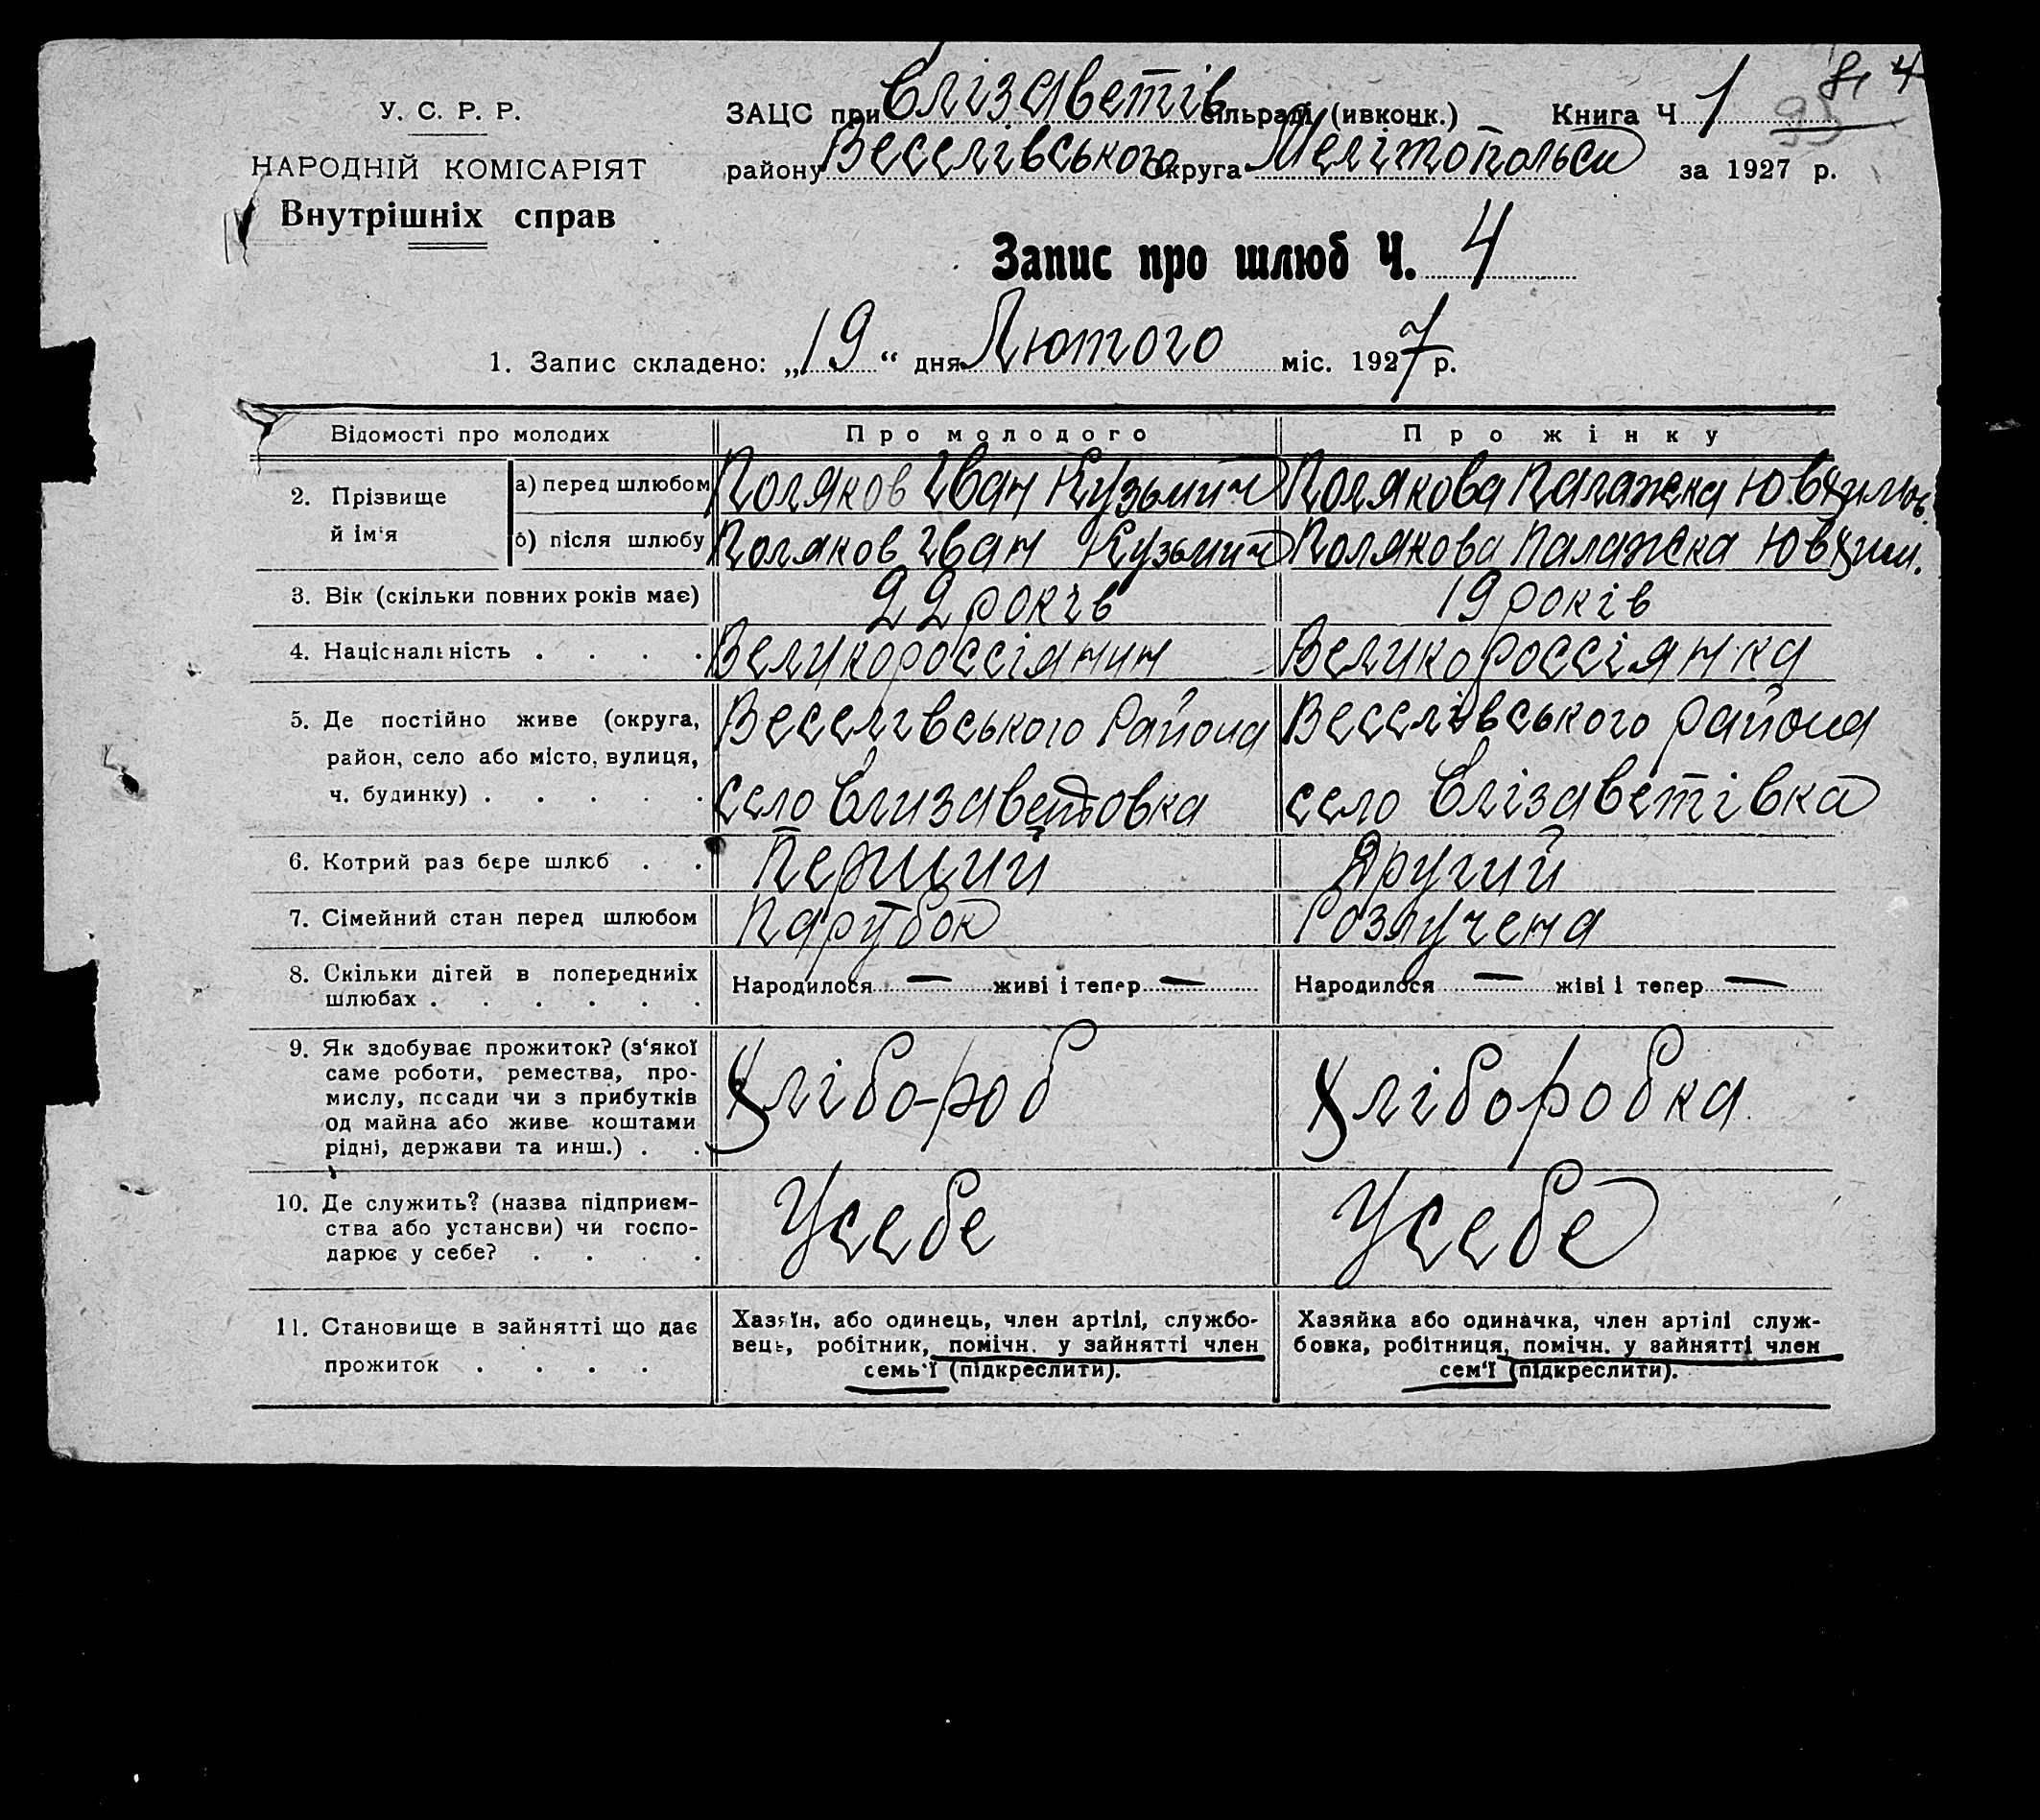 У. С. Р. Р.
НАРОДНІЙ КОМІСАРІЯТ
Внутрішніх справ
ЗАЦС при Єлізаветів сільраді (ивконк.) Книга Ч. 1
4
району Веселівського округа Мелітопольск за 1927 р.
Запис про шлюб Ч. 4
1. Запис складено: „19“ дня Лютого міс. 1927 р.
Відомості про молодих Про молодого Про жінку
2. Прізвище й ім‘я
а) перед шлюбом Поляков Іван Кузьмич Полякова Палажка Ювхимов.
б) після шлюбу Поляков Іван Кузьмич Полякова Палажка Ювхим.
3. Вік (скільки повних років має) 22 років 19 років
4. Національність . . . . Великороссіянин Великороссіянка
5. Де постійно живе (округа, Веселівського Района Веселівського района
район, село або місто, вулиця,
ч. будинку) . . . . . село Єлизаветовка село Єлізаветівка
6. Котрий раз бере шлюб . . Перший Другий
7. Сімейний стан перед шлюбом Парубок Розлучена
8. Скільки дітей в попередниіх
шлюбах . . . . . . Народилося — живі і тепер — Народилося — жіві і тепер —
9. Як здобуває прожиток? (з‘якої
саме роботи, ремества, про-
мислу, посади чи з прибутків
од майна або живе коштами
рідні, держави та инш.) . . Хлібо-роб Хліборобка
10. Де служить? (назва підприєм-
ства або установи) чи госпо-
дарює у себе? . . . . Усебе Усебе
11. Становище в зайнятті що дає
прожиток . . . .
Хазяїн, або одинець, член артілі, службо-
вець, робітник, помічн. у зайнятті член
семь‘ї (підкреслити).
Хазяйка або одиначка, член артілі служ-
бовка, робітниця, помічн. у зайнятті член
сем‘ї (підкреслити).